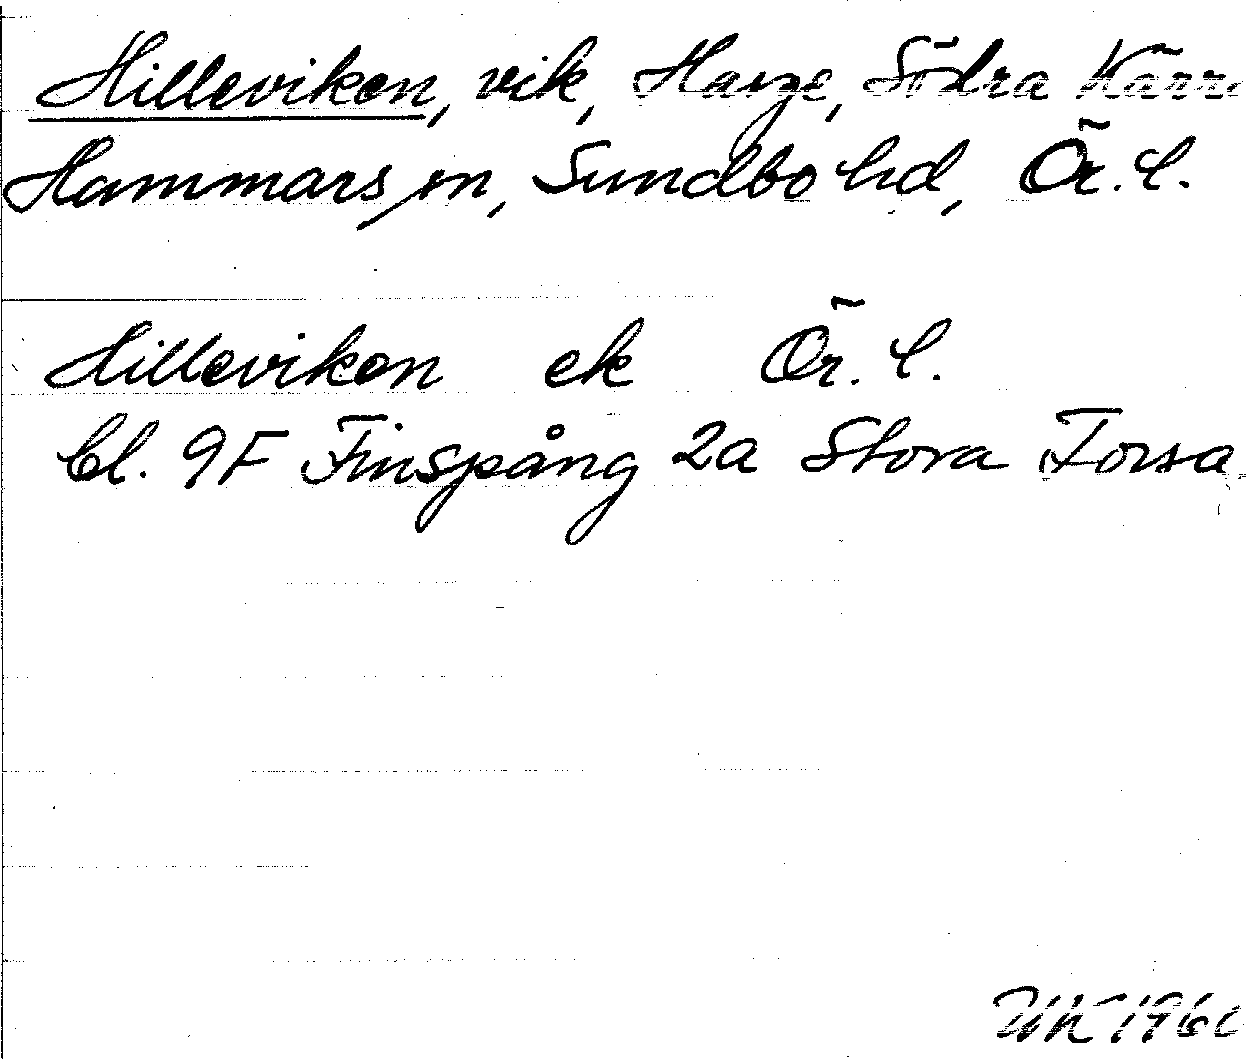 Hilleviken, vik, Harge, Södra Kärra
Hammars sn, Sundbo hd, Ör. l.
Hilleviken ek Ör. l.
bl. 9F Finspång 2a Stora Forsa